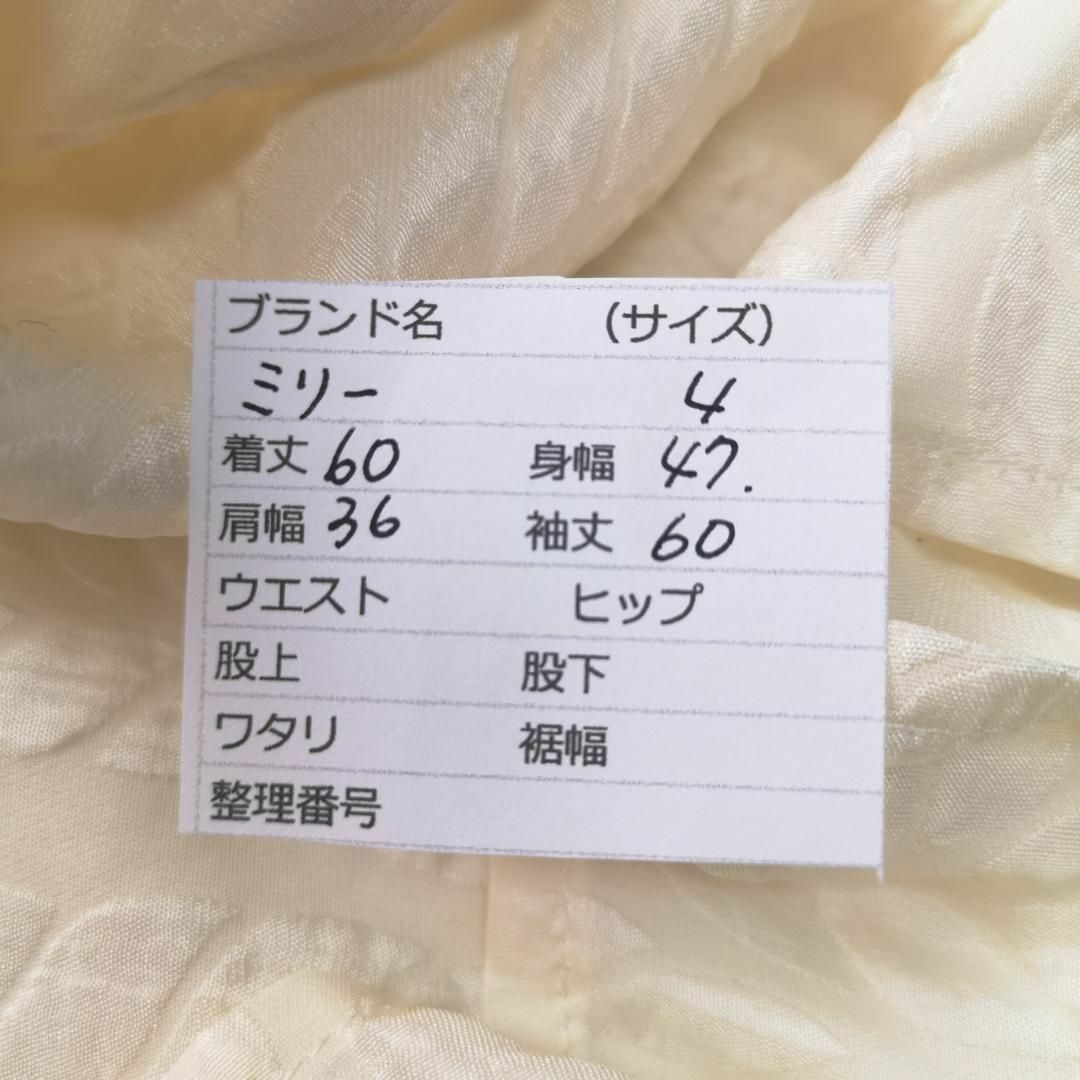 ブランド名 (サイズ)
ミリー 4
着丈 60 身幅 47.
肩幅 36 袖丈 60
ウエスト ヒップ
股上 股下
ワタリ 裾幅
整理番号